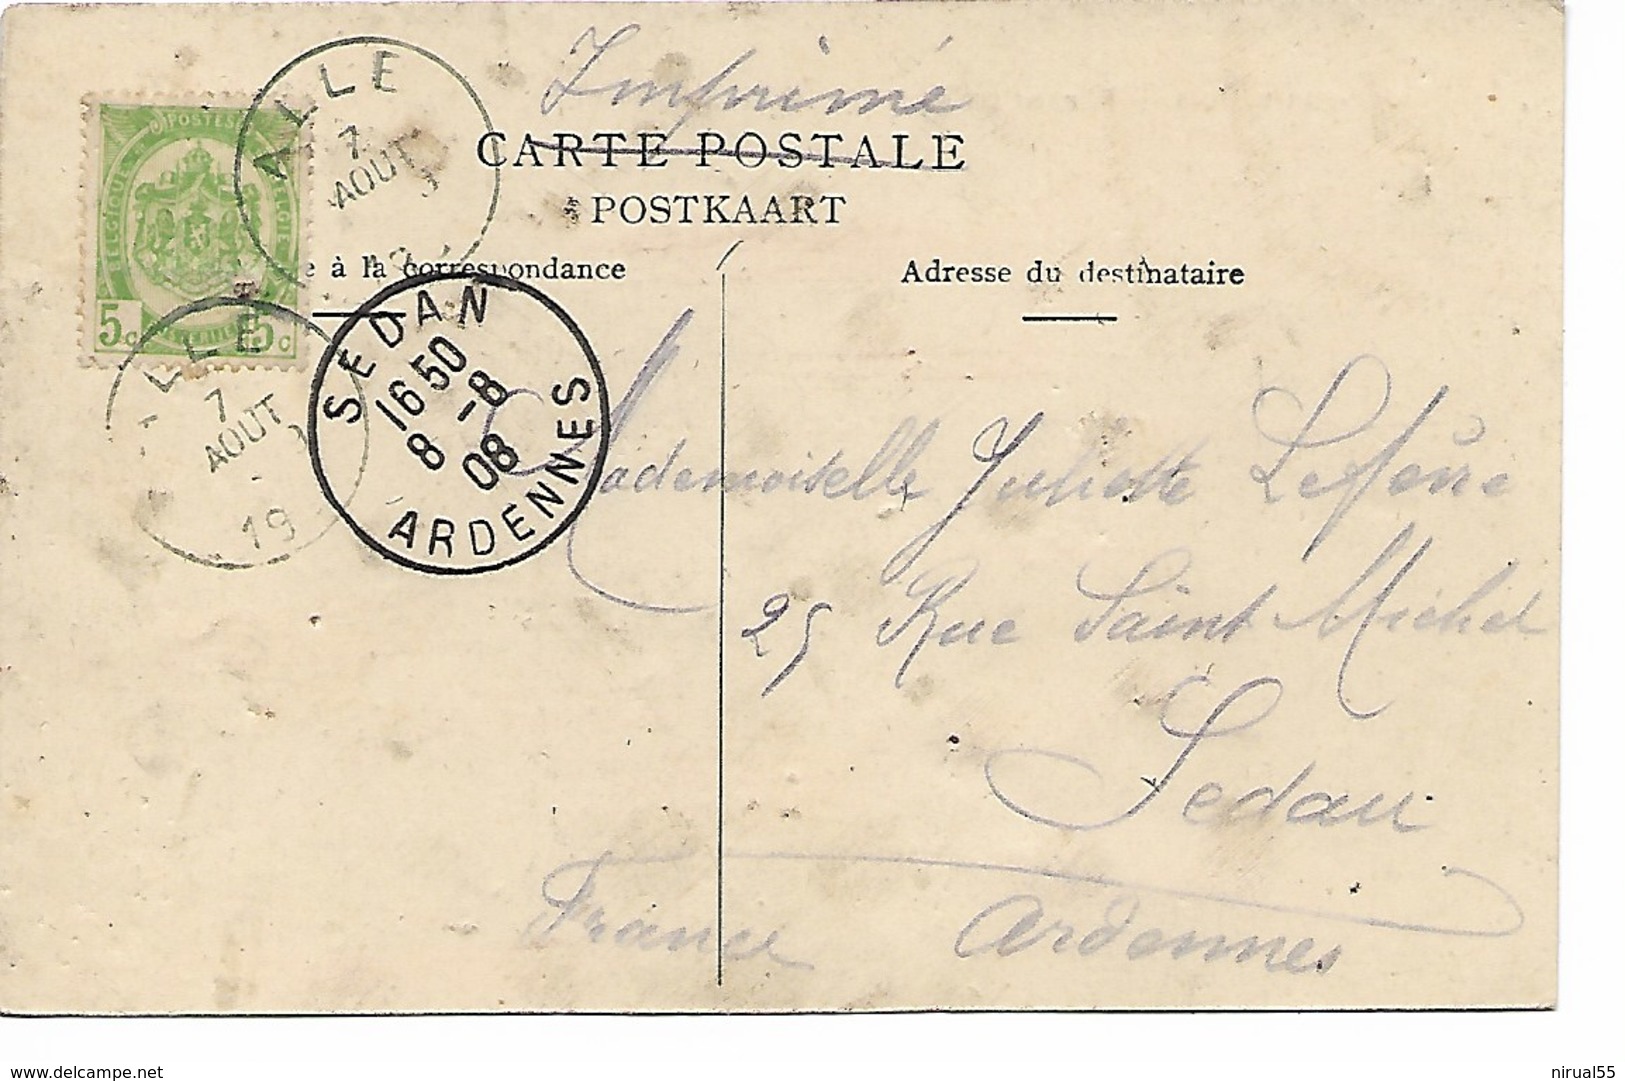 Imprimé
CARTE POSTALE
POSTKAART
e à la correspondance
Adresse du destinataire
POSTES
BELGIQUE
BELGIË
5c
5c
ALLE
7
AOUT
LLE
7
AOUT
19
SEDAN
16 50
8 -8
08
ARDENNES
Mademoiselle Juliette Lefèvre
25 Rue Saint Michel
Sedan
France Ardennes
www.delcampe.net
nirual55